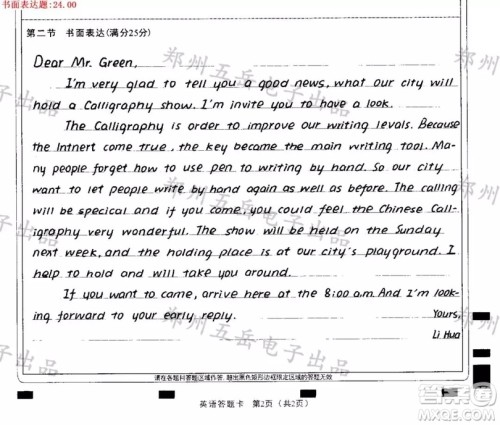 书面表达题:24.00
第二节 书面表达(满分25分)
Dear Mr. Green,
I'm very glad to tell you a good news, what our city will
hold a Calligraphy show. I'm invite you to have a look.
The Calligraphy is order to improve our writing levals. Because
the Intnert come true, the key became the main writing tool. Ma-
ny people forget how to use pen to writing by hand. So our city
want to let people write by hand again as well as before. The calling
will be specical and if you come, you could feel the Chinese Call-
igraphy very wonderful. The show will be held on the Sunday
next week, and the holding place is at our city's playground. I
help to hold and will take you around.
If you want to come, arrive here at the 8:00 a.m. And I'm look-
ing forward to your early reply.
Yours,
Li Hua
请在各题目答题区域作答,超出黑色矩形边框限定区域的答题无效
英语答题卡 第2页(共2页)
郑州五岳电子出品
郑州五岳电子出品
郑州五岳电子出品